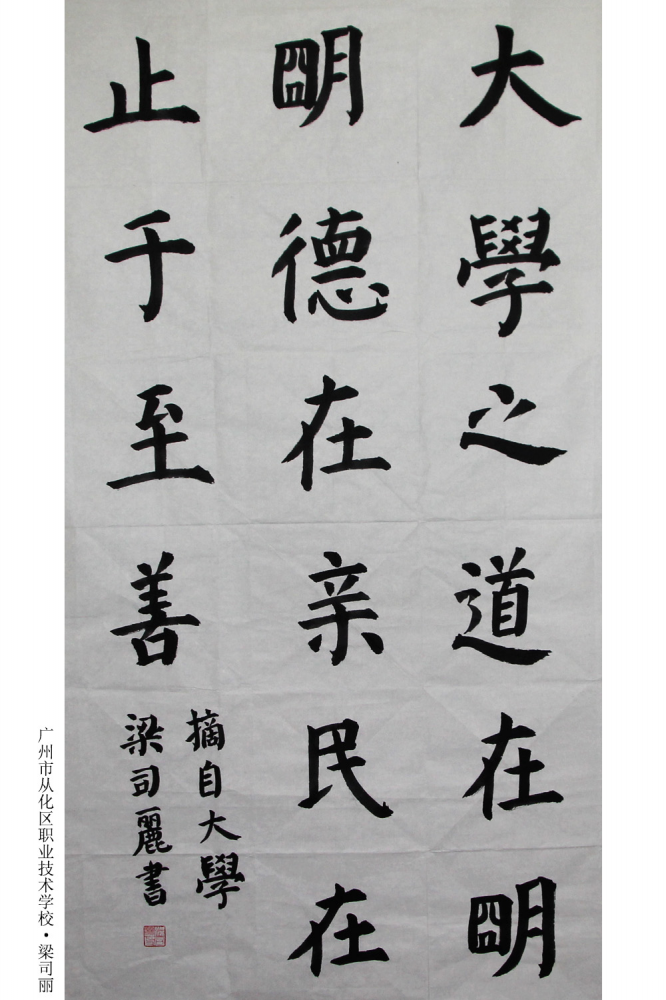 大學之道在明
明德在亲民在
止于至善
摘自大學
梁司麗書
广州市从化区职业技术学校·梁司丽